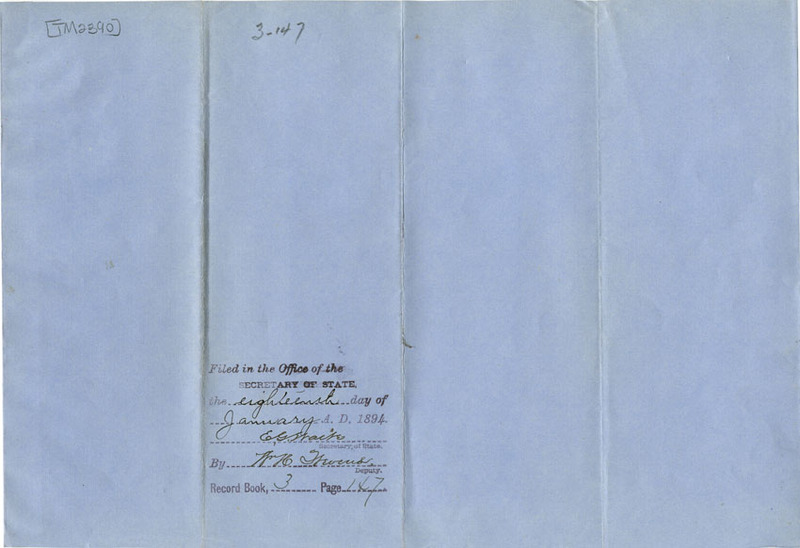 [TM2390]
3-147
Filed in the Office of the
SECRETARY OF STATE,
the eighteenth day of
January A. D. 1894
E G Waite
Secretary of State.
By W H
Deputy.
Record Book, 3 Page 147